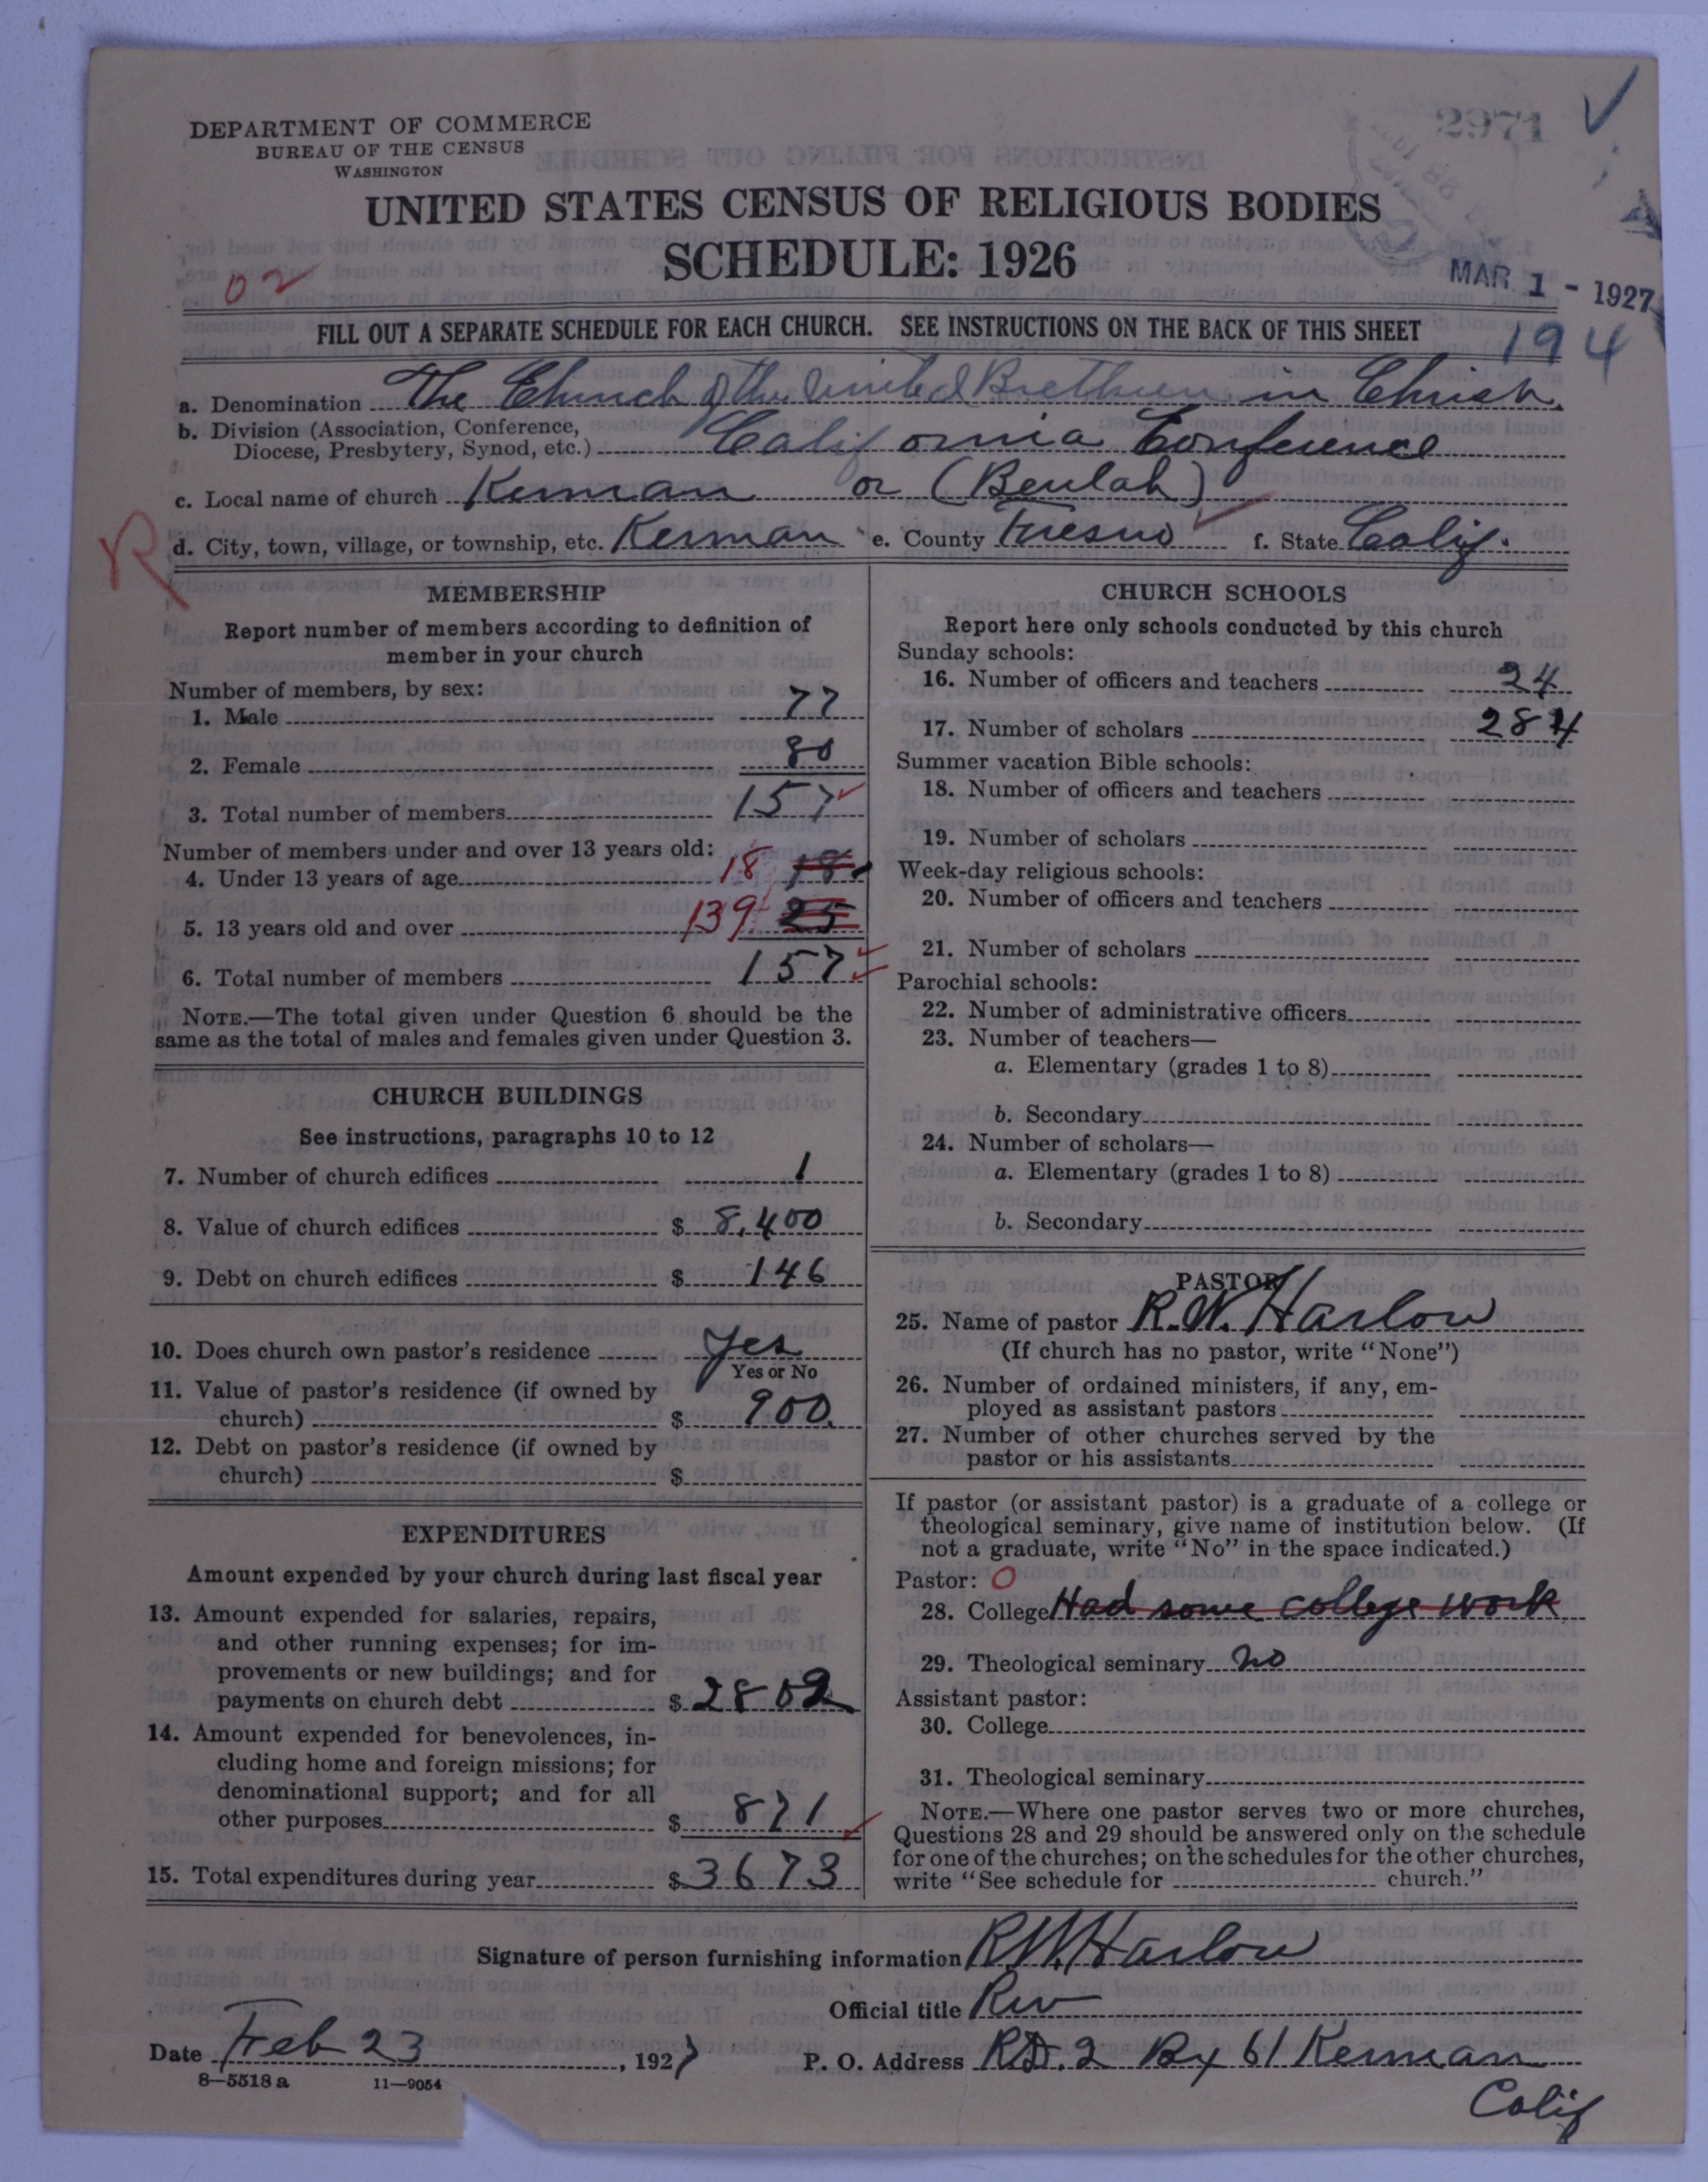 DEPARTMENT OF COMMERCE
BUREAU OF THE CENSUS
WASHINGTON
2971
UNITED STATES CENSUS OF RELIGIOUS BODIES
SCHEDULE: 1926
02
MAR 1 - 1927
FILL OUT A SEPARATE SCHEDULE FOR EACH CHURCH. SEE INSTRUCTIONS ON THE BACK OF THIS SHEET
194
a. Denomination The Church of the United Brethren in Christ.
b. Division (Association, Conference,
Diocese, Presbytery, Synod, etc.) California Conference
c. Local name of church Kerman or (Beulah)
R
d. City, town, village, or township, etc. Kerman e. County Fresno f. State Calif.
MEMBERSHIP
Report number of members according to definition of
member in your church
Number of members, by sex:
1. Male 77
2. Female 80
3. Total number of members 157
Number of members under and over 13 years old:
4. Under 13 years of age 18 18
5. 13 years old and over 139 25
6. Total number of members 157
NOTE.—The total given under Question 6 should be the
same as the total of males and females given under Question 3.
CHURCH BUILDINGS
See instructions, paragraphs 10 to 12
7. Number of church edifices 1
8. Value of church edifices $ 8,400
9. Debt on church edifices $ 146
10. Does church own pastor's residence Yes
Yes or No
11. Value of pastor's residence (if owned by
church) $ 900.
12. Debt on pastor's residence (if owned by
church) $
EXPENDITURES
Amount expended by your church during last fiscal year
13. Amount expended for salaries, repairs,
and other running expenses; for im-
provements or new buildings; and for
payments on church debt $ 2802
14. Amount expended for benevolences, in-
cluding home and foreign missions; for
denominational support; and for all
other purposes $ 871
15. Total expenditures during year $ 3673
CHURCH SCHOOLS
Report here only schools conducted by this church
Sunday schools:
16. Number of officers and teachers 24
17. Number of scholars 284
Summer vacation Bible schools:
18. Number of officers and teachers
19. Number of scholars
Week-day religious schools:
20. Number of officers and teachers
21. Number of scholars
Parochial schools:
22. Number of administrative officers
23. Number of teachers—
a. Elementary (grades 1 to 8)
b. Secondary
24. Number of scholars—
a. Elementary (grades 1 to 8)
b. Secondary
PASTOR
25. Name of pastor R.W. Harlow
(If church has no pastor, write "None")
26. Number of ordained ministers, if any, em-
ployed as assistant pastors
27. Number of other churches served by the
pastor or his assistants
If pastor (or assistant pastor) is a graduate of a college or
theological seminary, give name of institution below. (If
not a graduate, write "No" in the space indicated.)
Pastor: O
28. College Had some college work
29. Theological seminary no
Assistant pastor:
30. College
31. Theological seminary
NOTE.—Where one pastor serves two or more churches,
Questions 28 and 29 should be answered only on the schedule
for one of the churches; on the schedules for the other churches,
write "See schedule for church."
Signature of person furnishing information R W Harlow
Official title Rev
Date Feb 23, 1927 P. O. Address RD. 2 Bx 61 Kerman
Calif
8—5518 a 11—9054